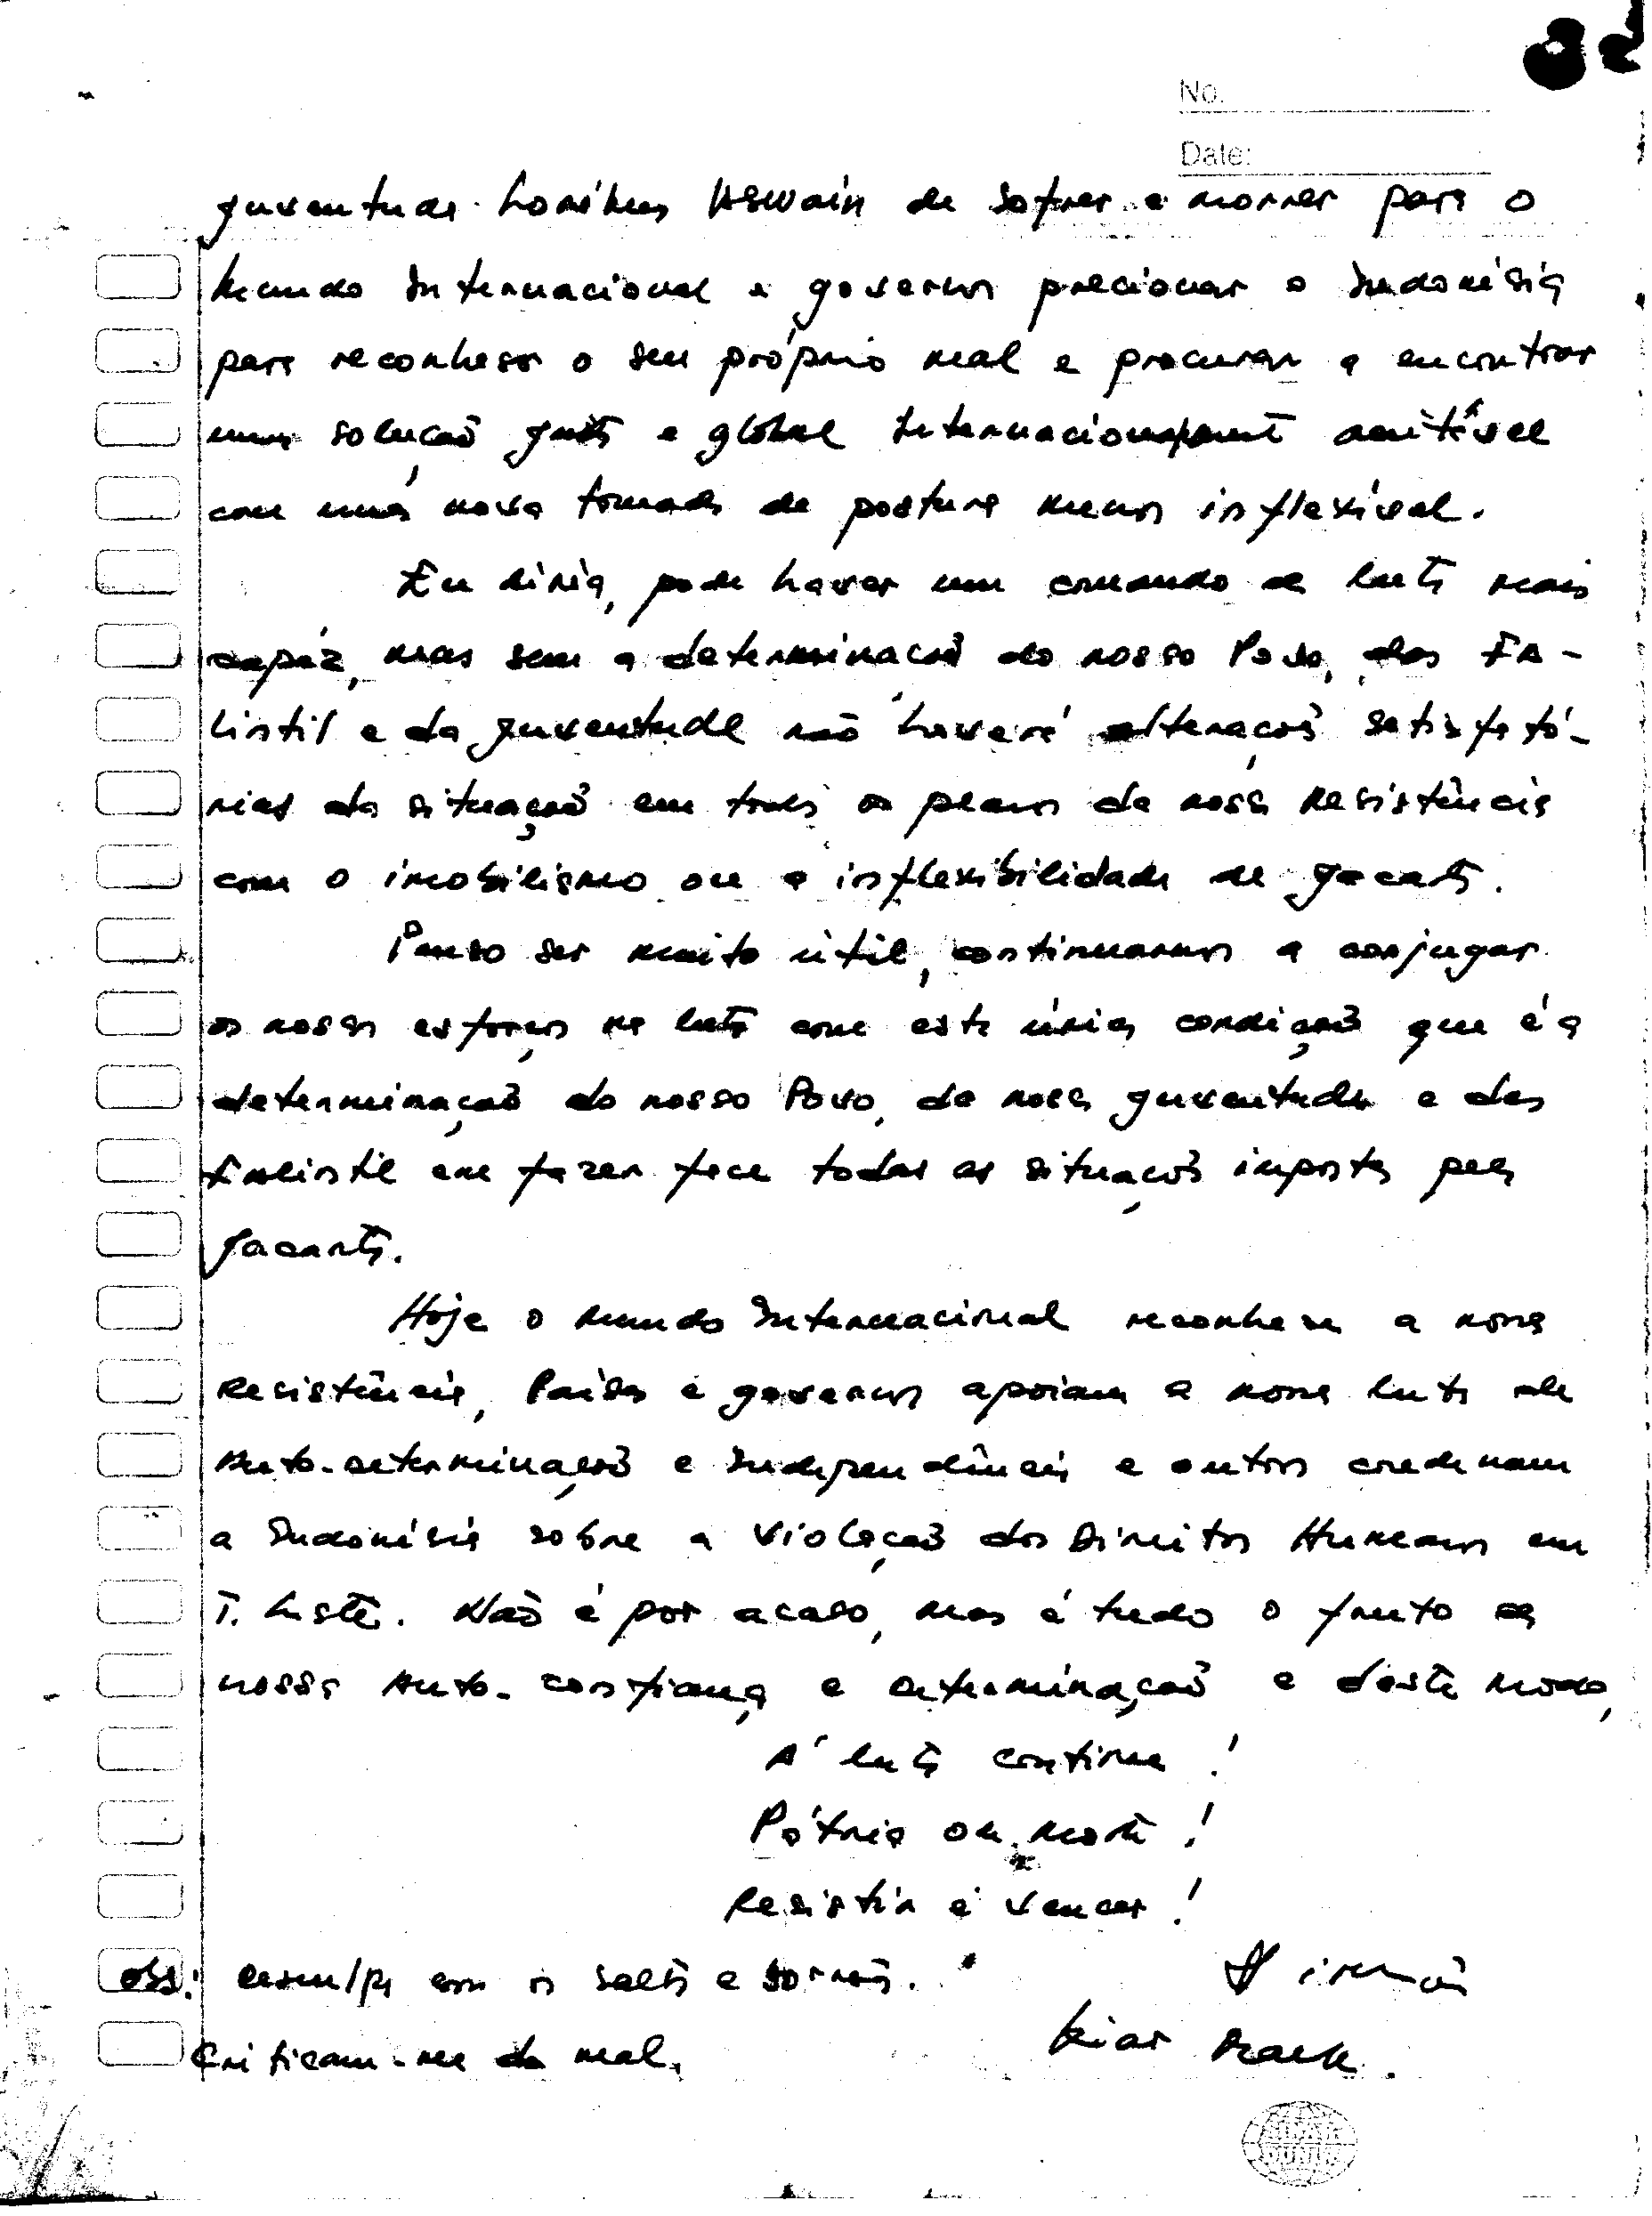 32
No.
Date:
juventude Loriku Aswain de sofrer e morrer para o
mundo Internacional e governos precionar o Indonésia
para reconheser o seu próprio mal e procurar a encontrar
uma solução justa e global Internacionalmente
com uma nova tomada de postura menos inflexível.
Eu diria, pode haver um comando de luta mais
capáz, mas sem a determinação do nosso Povo, das FA-
lintil e da juventude não haverá alteraçoẽs satisfató-
rias da situação em todos os planos da nossa Resistência
com o imobilismo ou a inflexibilidade de Jacarta.
Penso ser muito útil, continuarmos a conjugar
os nossos esforços na luta com esta única condição que é a
determinação do nosso Povo, da nossa juventude e das
Falintil em fazer face todas as situaçoẽs impostas pela
Jacarta.
Hoje o mundo Internacional reconhese a nossa
Resistência, Países e governos apoiam a nossa luta de
Auto-determinação e Independência e outros condenam
a Indonésia sobre a violação dos Direitos Humanos em
T. Leste. Naõ é por acaso, mas é tudo o fruto da
nossa Auto-confiança e determinação e deste modo,
A' luta continua!
Pátria ou morte!
Resistir é vencer!
obs: desculpa com os
Criticam-me do mal.
O irmaõ